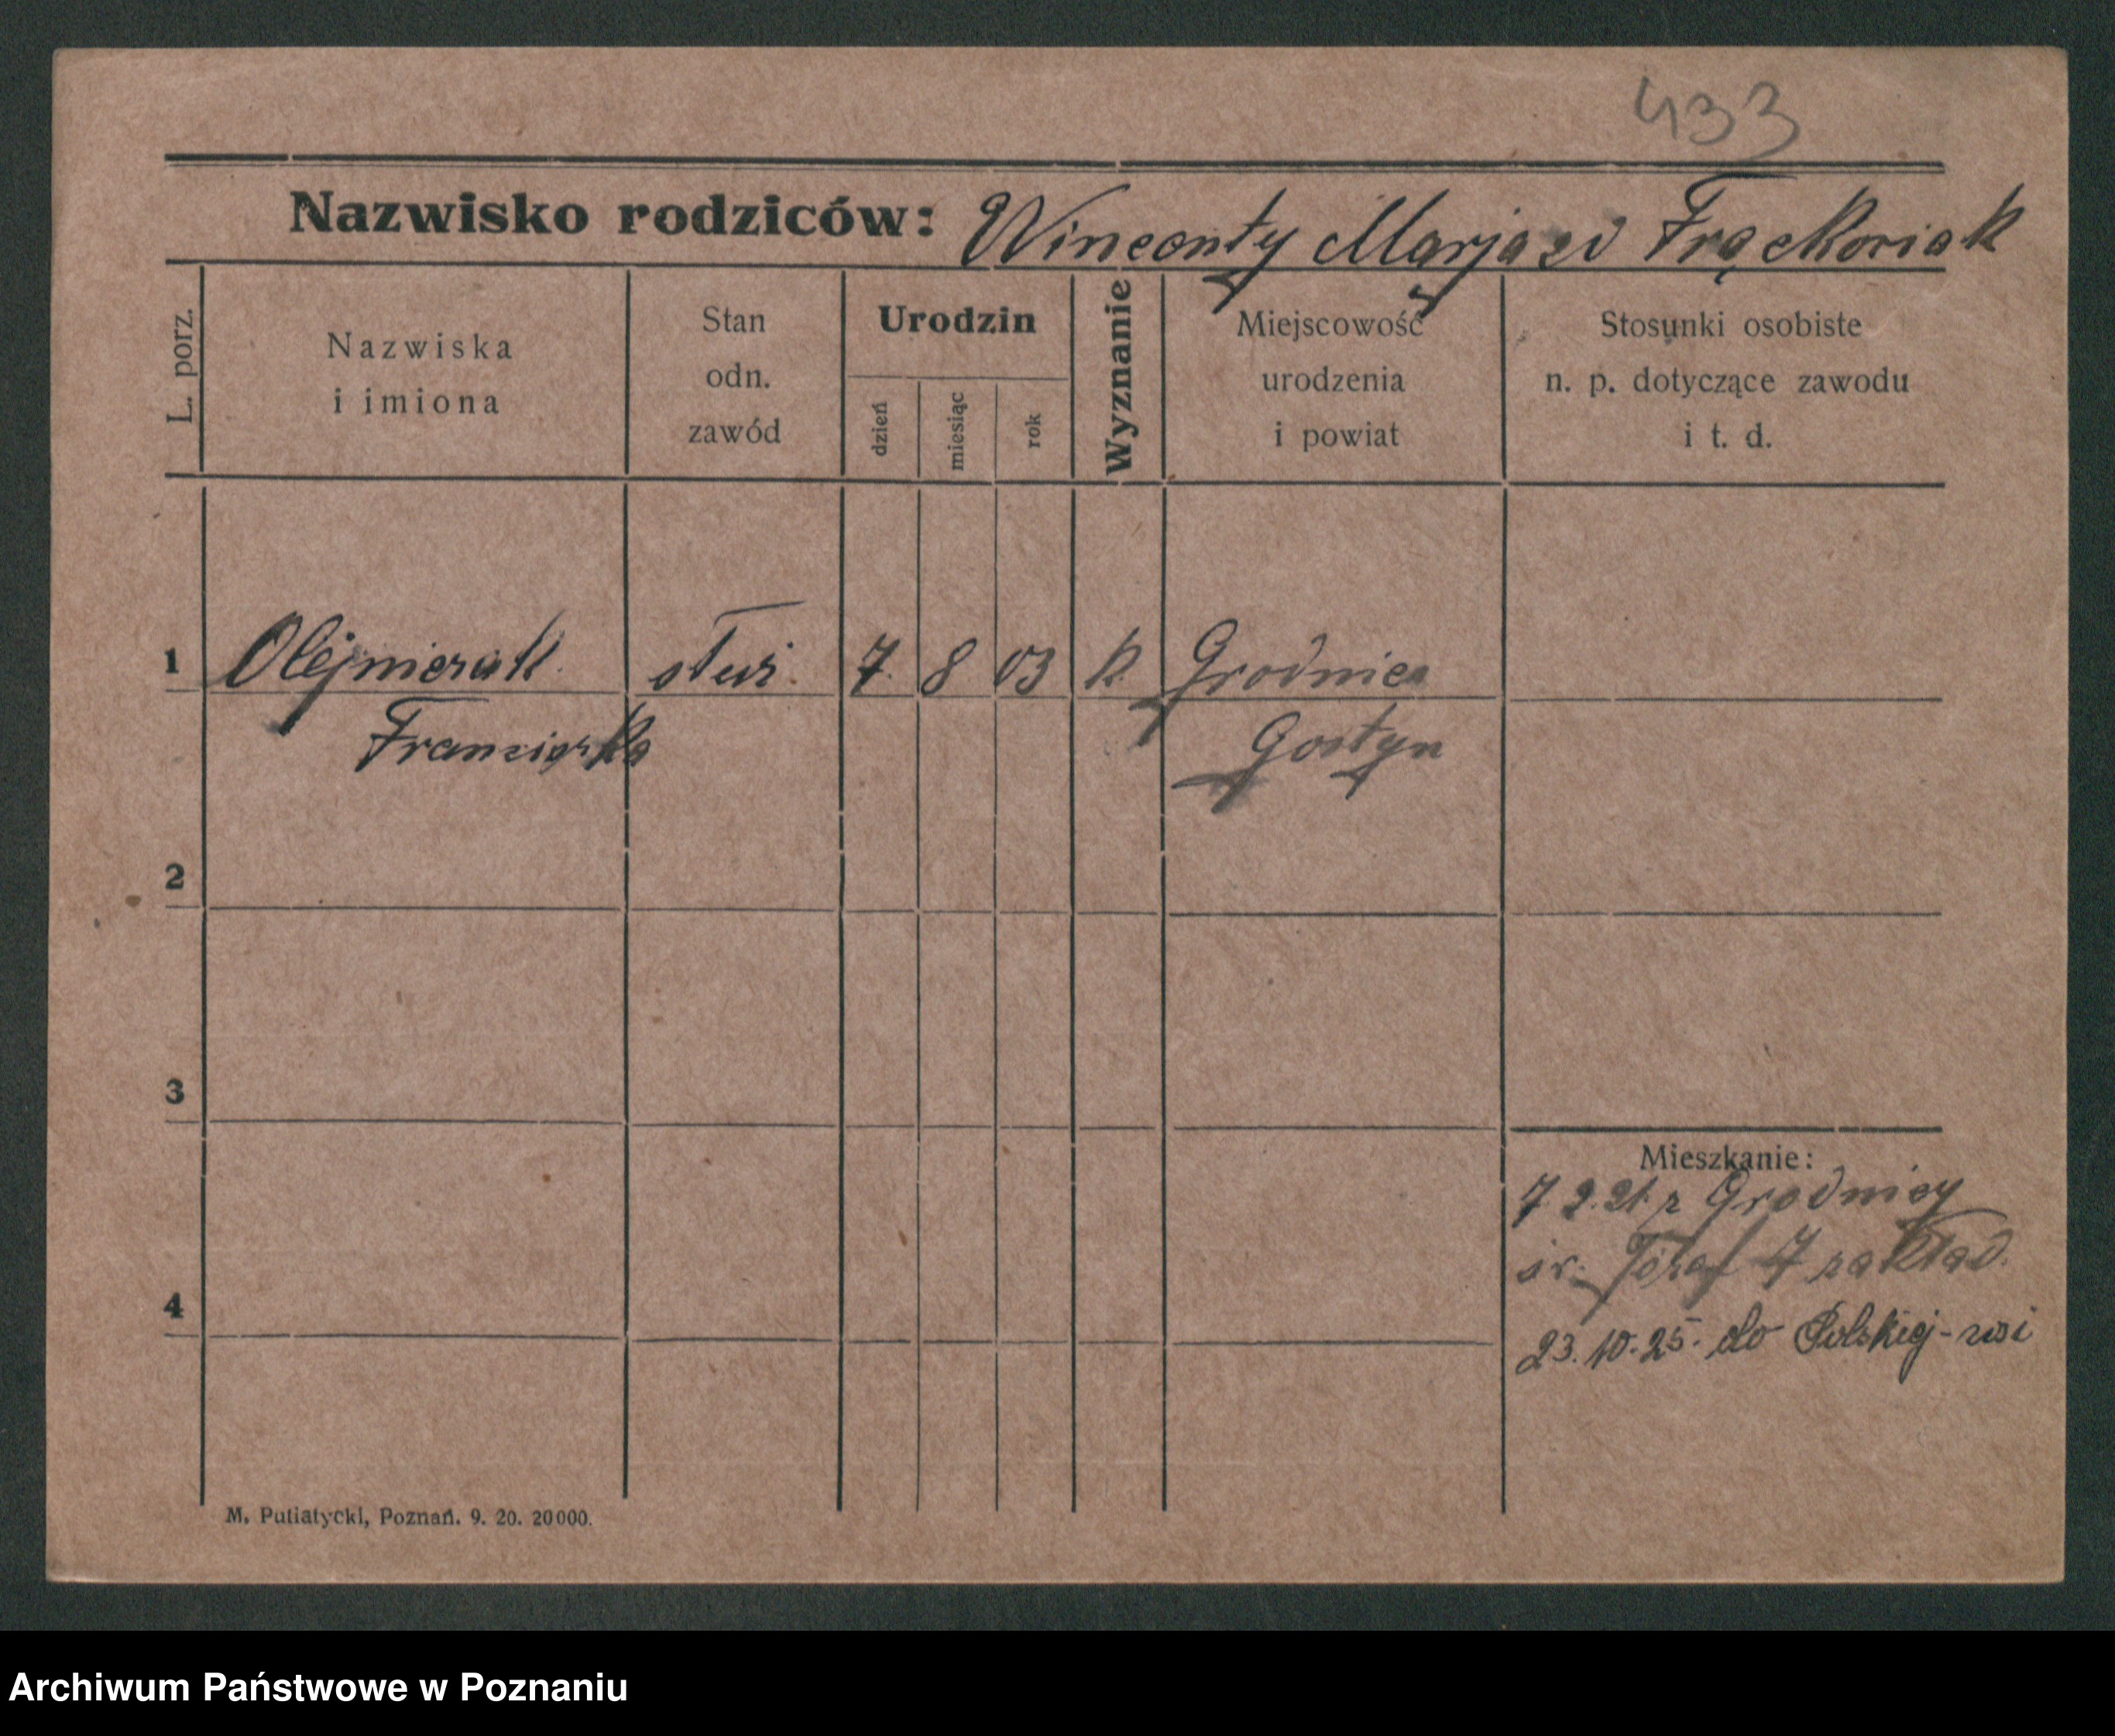 433
Nazwisko rodziców: Wincenty Marja zd Frąckoriak
L. porz.
Nazwiska
i imiona
Stan
odn.
zawód
Urodzin
dzień
miesiąc
rok
Wyznanie
Miejscowość
urodzenia
i powiat
Stosunki osobiste
n. p. dotyczące zawodu
i t. d.
1 Olejniczak służ. 7. 8 03 k. Grodnica
Franciszka Gostyn
2
3
Mieszkanie:
7. 2. 21. z Grodnicy
św. Józef 7 zakład.
4
23. 10. 25. do Polskiej-wsi
M. Putiatycki, Poznań. 9. 20. 20000.
Archiwum Państwowe w Poznaniu